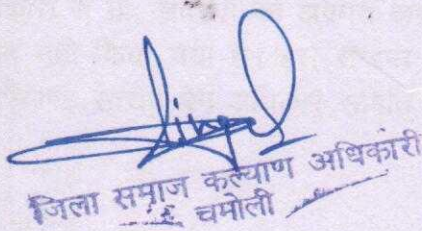 जिला समाज कल्याण अधिकारी
चमोली